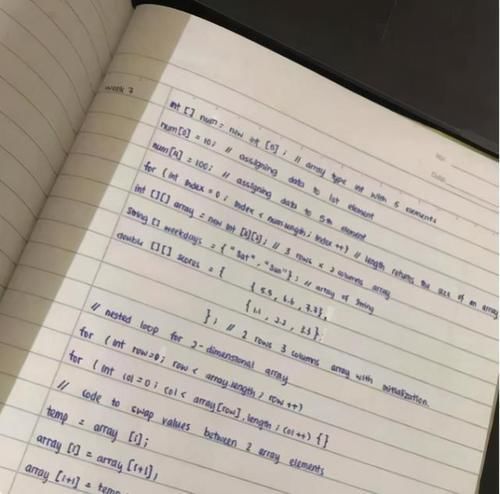 week 7
int [] num = new int [5]; // array type int with 5 elements
num[0] = 10; // assigning data to 1st element
num[4] = 100; // assigning data to 5th element
for (int index = 0; index < num.length; index ++) // length returns the size of an array
int [][] array = new int [3][2]; // 3 rows & 2 columns array
String [] weekdays = { "Sat", "Sun" }; // array of string
double [][] scores = {
{ 5.5, 6.6, 7.7 },
{ 1.1, 2.2, 3.3 }
}; // 2 rows 3 columns array with initialization.
// nested loop for 2-dimensional array
for ( int row=0; row < array.length ; row ++)
for ( int col = 0; col < array[row].length ; col ++) { }
// code to swap values between 2 array elements
temp = array [i];
array [i] = array [i+1];
array [i+1] = temp
No:
Date: